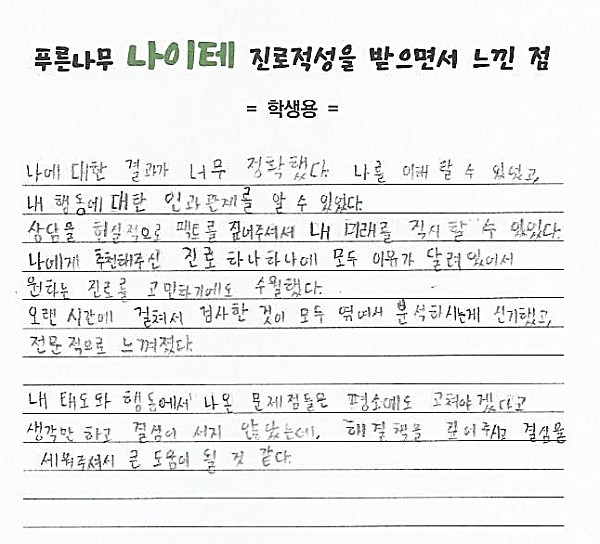 푸른나무 나이테 진로적성을 받으면서 느낀 점
= 학생용 =
나에 대한 결과가 너무 정확했다. 나를 이해 할 수 있었고,
내 행동에 대한 인과관계를 알 수 있었다.
상담을 현실적으로 팩트를 짚어주셔서 내 미래를 직시 할 수 있었다.
나에게 추천해주신 진로 하나하나에 모두 이유가 달려있어서
원하는 진로를 고민하기에도 수월했다.
오랜 시간에 걸쳐서 검사한 것이 모두 엮여서 분석하시는게 신기했고,
전문적으로 느껴졌다.
내 태도와 행동에서 나온 문제점들은 평소에도 고쳐야겠다고
생각만 하고 결심이 서지 않았는데, 해결책을 짚어주시고 결심을
세워주셔서 큰 도움이 될 것 같다.